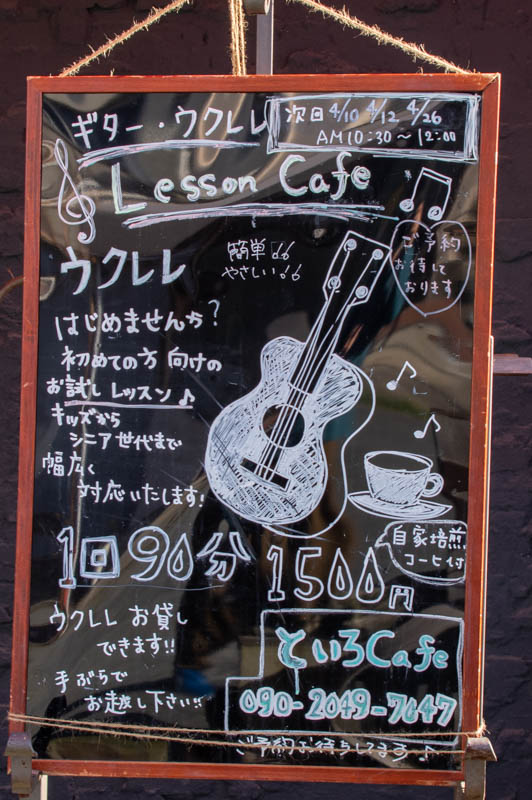 ギター・ウクレレ
次回 4/10 4/12 4/26
AM10:30～12:00
Lesson Cafe
ウクレレ
簡単♪♪
やさしい♪♪
ご予約
お待して
おります
はじめませんか?
初めての方向けの
お試しレッスン♪
キッズから
シニア世代まで
幅広く
対応いたします!
1回90分 1500円
自家焙煎
コーヒー付
ウクレレお貸し
できます!!
手ぶらで
お越し下さい!!
といろCafe
090-2049-7647
ご予約お待ちしてます♪